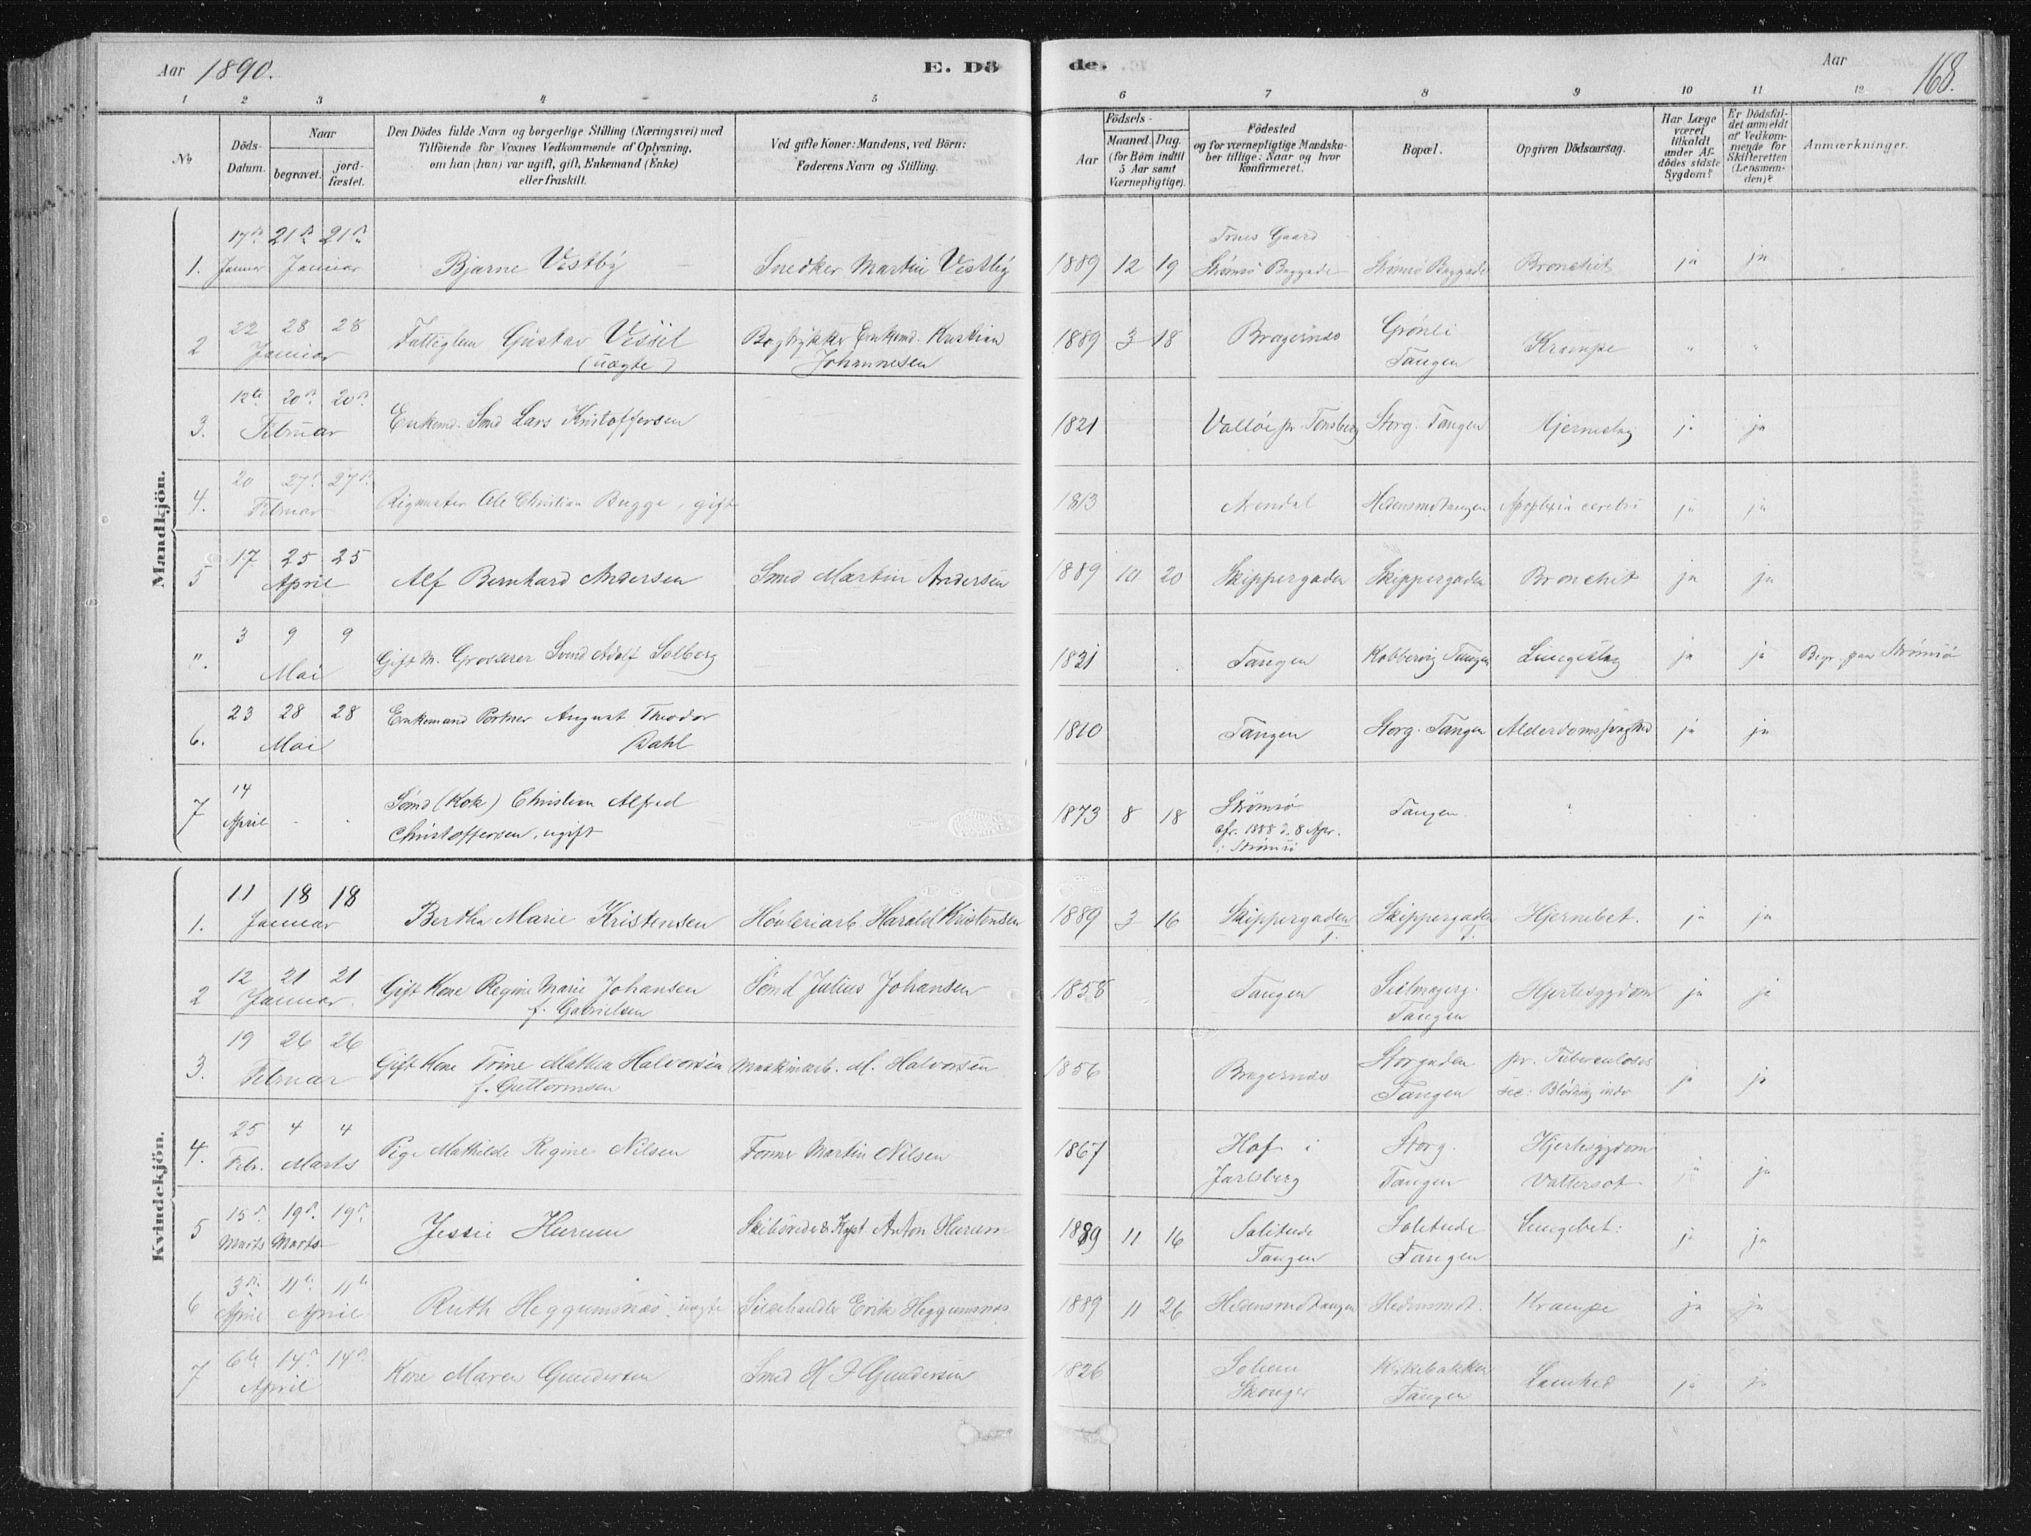 Aar 1890. E. Dö de. Aar 168.
1 2 3 4 5 6 7 8 9 10 11 12
No
Döds-Datum.
Naar
begravet.
jord-fæstet.
Den Dödes fulde Navn og borgerlige Stilling (Næringsvei) med
Tilföiende for Voxnes Vedkommende af Oplysning,
om han (hun) var ugift, gift, Enkemand (Enke)
eller fraskilt.
Ved gifte Koner: Mandens, ved Börn:
Faderens Navn og Stilling.
Födsels-
Aar
Maaned. Dag.
(for Börn indtil
5 Aar samt
Værnepligtige).
Födested
og for værnepligtige Mandska-
ber tillige: Naar og hvor
konfirmeret.
Bopæl.
Opgiven Dödsaarsag.
Har Læge
været
tilkaldt
under Af-
dödes sidste
Sygdom?
Er Dödsfal-
det anmeldt
af Vedkom-
mende for
Skifteretten
(Lensman-
den)?
Anmærkninger.
Mandkjön.
17de 21de 21de Tones Gaard
1. Januar Januar Bjarne Vestby Snedker Martin Vestby 1889 12 19 Strømsø Baggade Strømsø Baggade Bronchit ja ja
22 28 28 Fattiglem Gustav Vessel Bogtrykker Enkemd. Kristian 1889 3 18 Bragernæs Grönli Krampe " "
2 Januar (uægte) Johannesen Tangen
12te 20de 20de
3. Februar Enkemd. Smd Lars Kristoffersen 1821 Vallöe pr. Tönsberg Storg. Tangen Hjerneslag ja ja
20 27de 27de
4. Februar Rigmester Ole Christian Bugge, gift 1813 Arendal Hedensmdtangen Apoplexia cerebri ja ja
17 25 25
5 April Alf Bernhard Andersen Smd Martin Andersen 1889 10 20 Skippergaden Skippergaden Bronchit ja ja
3 9 9
". Mai Gift M. Grosserer Svend Adolf Solberg 1821 Tangen Kobbervig Tangen Lungeslag ja ja Begr. paa Strømsö
23 28 28 Enkemand Portner August Theodor
6. Mai Dahl 1810 Tangen Storg. Tangen Alderdomssvaghed ja ja
14 Sömd (Kok) Christian Alfred
7 April Christoffersen, ugift 1873 8 18 Strömsö Tangen
cfr. 1888 d. 8 Apr.
i Strömsö
Kvindekjön.
11 18 18
1. Januar Bertha Marie Kristensen Höuleriarb. Harald Kristensen 1889 3 16 Skippergaden T. Skippergaden T. Hjernebet. ja ja
12 21 21
2 Januar Gift Kone Regine Marie Johansen Sömd Julius Johansen 1858 Tangen Tangen Hjertesygdom ja ja
f. Gabrielsen
19 26 26
3. Februar Gift Kone Trine Mathea Halvorsen Maskinarb. M. Halvorsen 1856 Bragernæs Storgaden Tangen pr. Tuberculoses sec: Blödning indv ja ja
f. Guttormsen
25 4 4
4. Febr. Marts Pige Mathilde Regine Nilsen Former Martin Nilsen 1867 Hof i Jarlsberg Storg. Tangen Hjertesygdom Vattersot ja ja
15de 19de 19de
5 Marts Marts Jessie Hurum Skibsreder & Kapt Anton Hurum 1889 11 16 Solitude Tangen Solitude Tangen Lungebet: ja ja
3die 11te 11te
6 April April Ruth Heggumsnæs uægte Erik Heggumsnæs 1889 11 26 Hedensmdtangen Hedensmdt. Krampe ja ja
6te 14de 14de
7 April Kone Maren Gundersen Smd H J Gundersen 1826 Solum Skouger Kirkebakken Tangen Lamhed ja ja